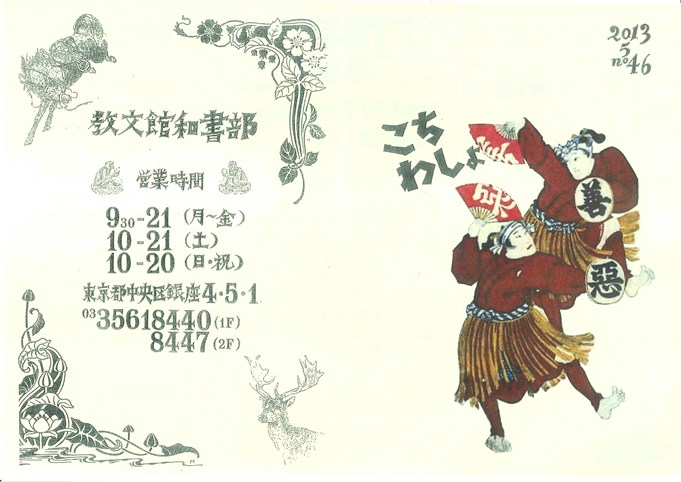 教文館和書部
営業時間
930-21 (月~金)
10-21 (土)
10-20 (日・祝)
東京都中央区銀座4・5・1
03 35618440 (1F)
8447 (2F)
2013
5
no46
こち
わしょ
善
惡